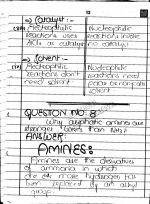 13
→ Catalyst:-
Electrophilic | Nucleophilic
reactions uses | reactions involve
as catalyst | no catalyst
→ Solvent:-
Electrophilic | Nucleophilic
reactions don't | reactions need
need solvent |
QUESTION NO: 8
Why aliphatic amines are
stronger bases than NH3?
ANSWER:
AMINES:-
Amines are the derivatives
of ammonia in which
one or more hydrogen has
been replaced by an alkyl
group.